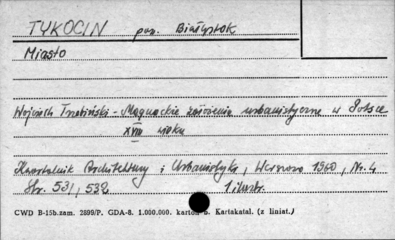 TYKOCIN pow. Białystok
Miasto
Wojciech Trzebiński - Magnackie założenia urbanistyczne w Polsce
XVIII wieku
Kwartalnik Architektury i Urbanistyki, Warszawa 1960, Nr. 4
Str. 531, 532 1 ilustr.
CWD B-15b.zam. 2899/P. GDA-8. 1.000.000. karton B. Kartakatal. (z liniat.)